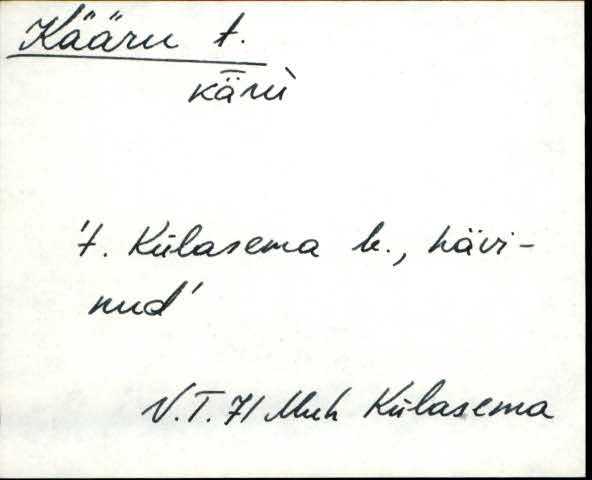 Kääru t.
kǟrù
't. Külasema k., hävi-
nud'
V.T. 71 Muh Külasema